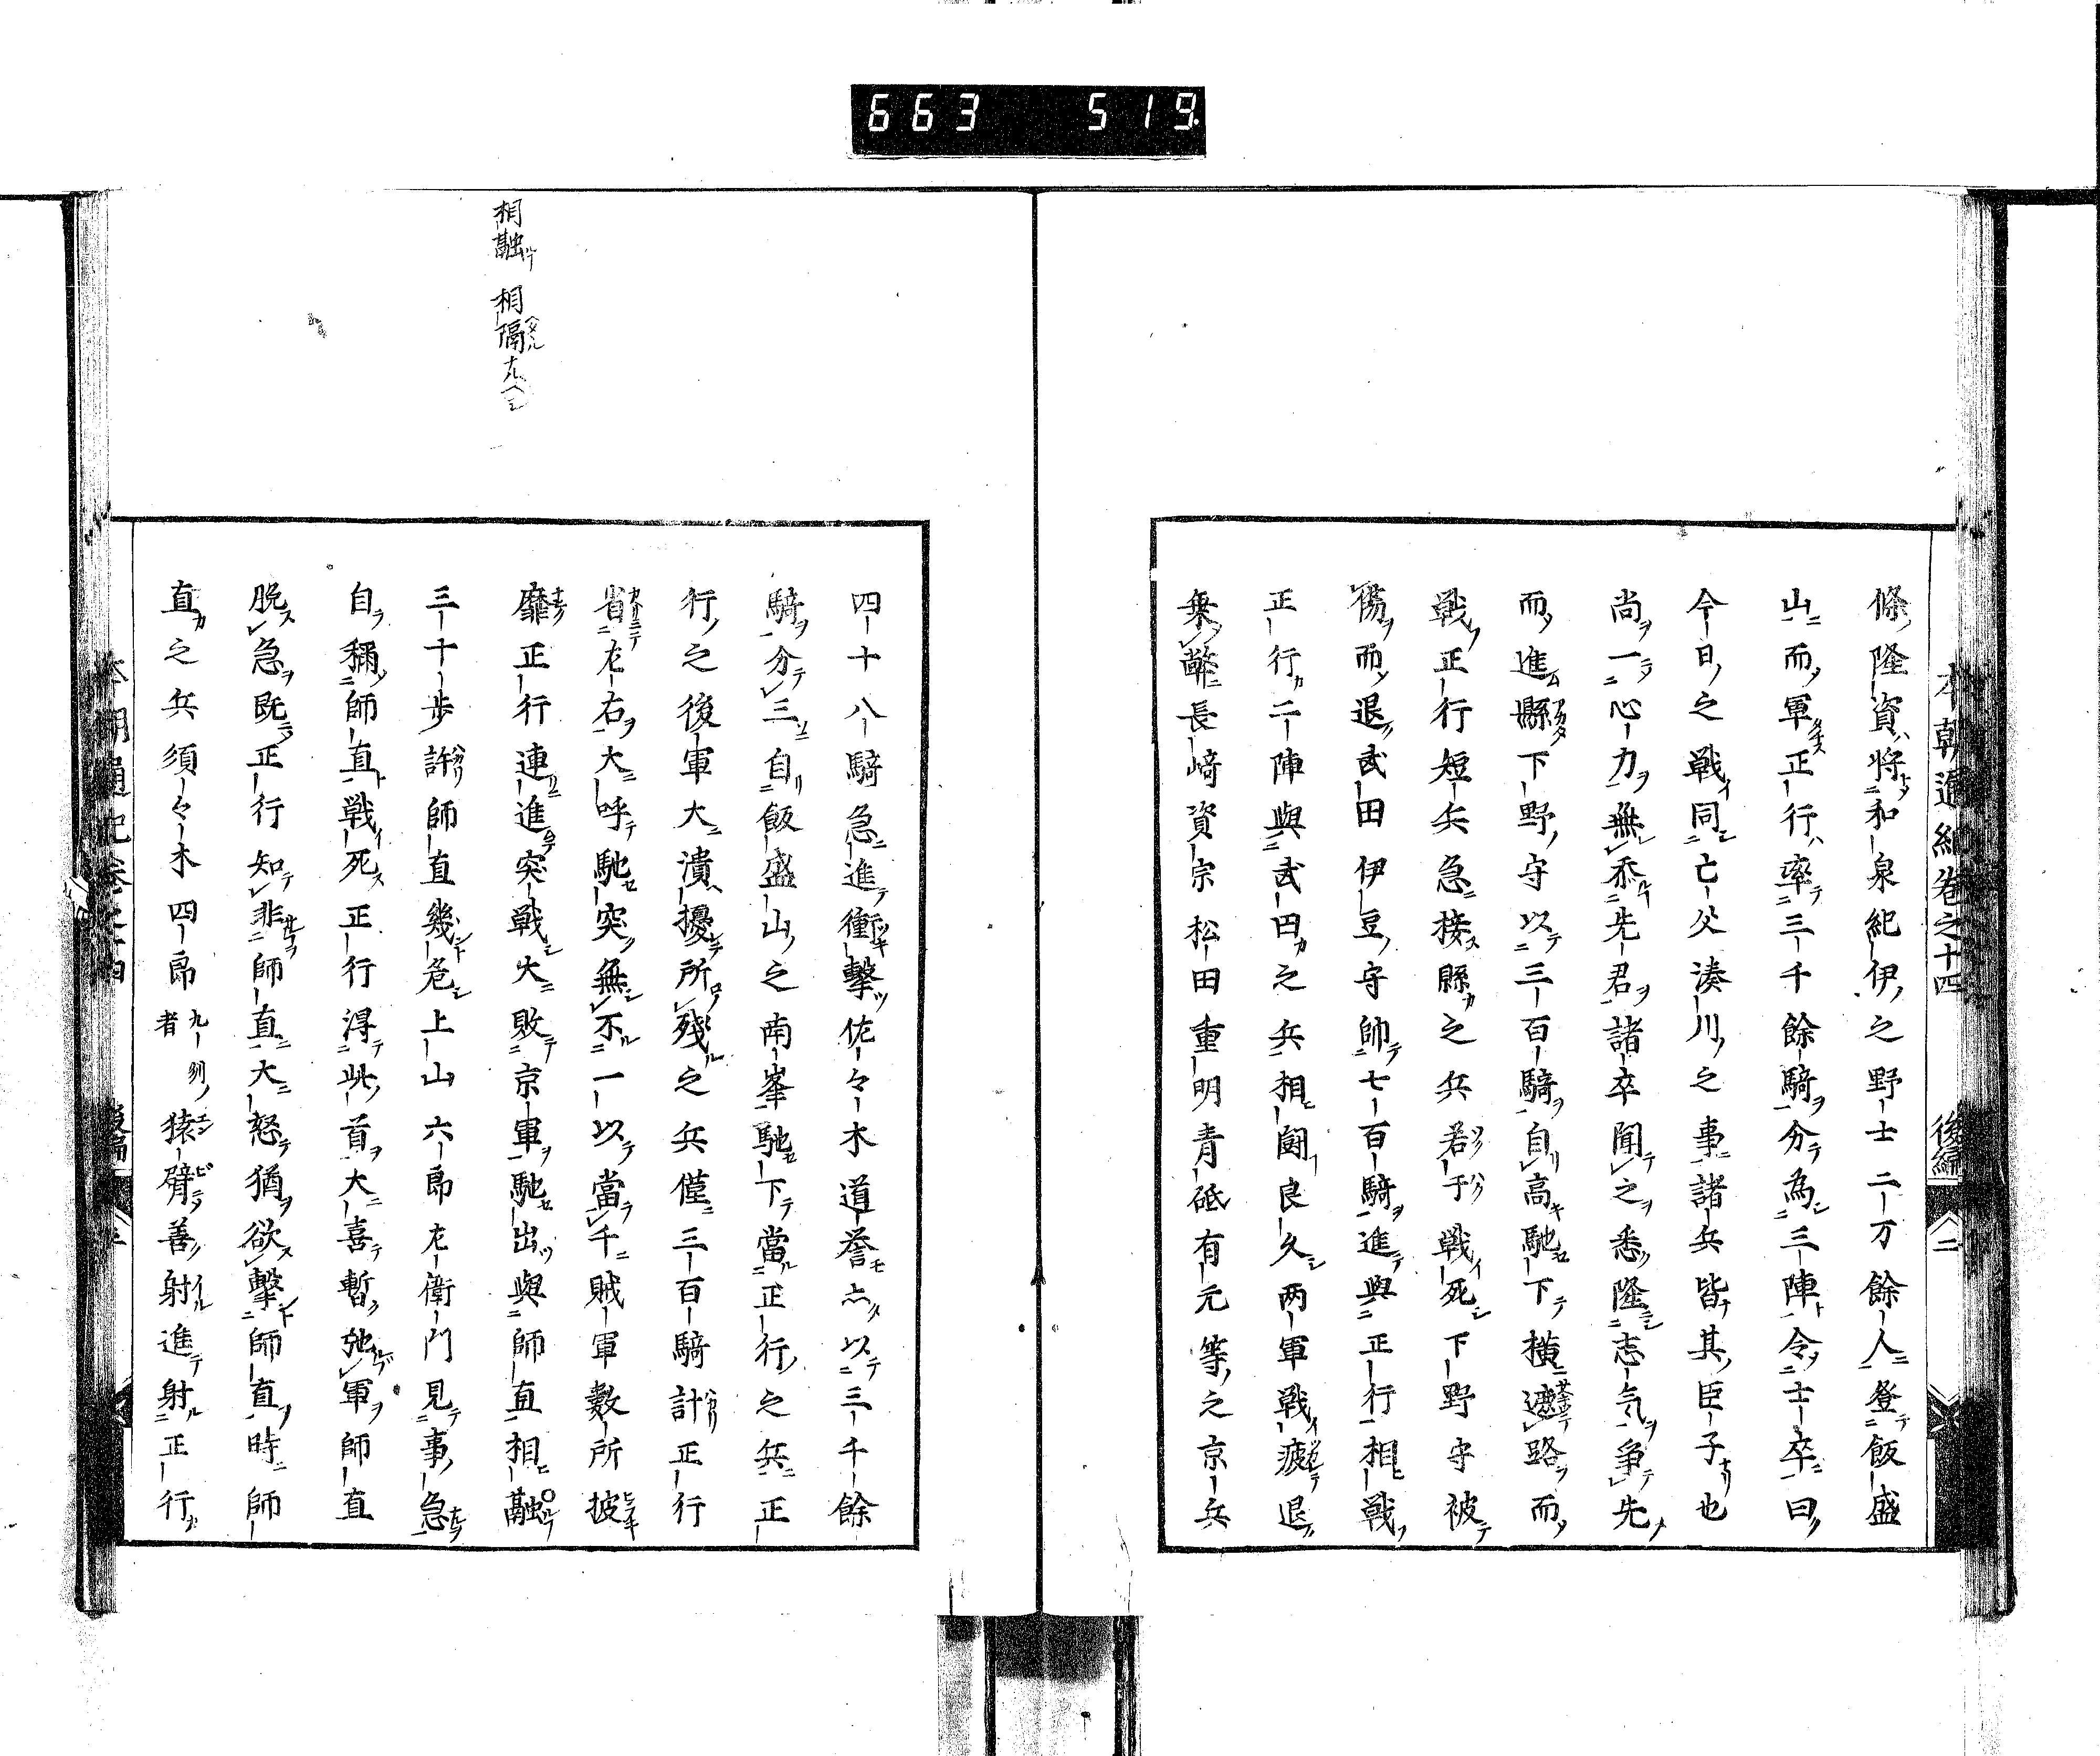 663 519
本朝通紀卷之十四 後編 二
條隆資將和泉紀伊之野士二万餘人登飯盛
山而軍正行率三千餘騎分為三陣令士卒曰
今日之戰同亡父湊川之事諸兵皆其臣子也
尚一心力無忝先君諸卒聞之悉隆志气争先
而進縣下野守以三百騎自高馳下横遮路而
戰正行短兵急接縣之兵若于戰死下野守被
傷而退武田伊豆守帥七百騎進與正行相戰
正行二陣與武田之兵相鬪良久两軍戰疲退
乗弊長﨑資宗松田重明青砥有元等之京兵
四十八騎急進衝擊佐々木道誉亦以三千餘
騎分三自飯盛山之南峯馳下當正行之兵正
行之後軍大潰擾所殘之兵僅三百騎計正行
省左右大呼馳突無不一以當千賊軍數所披
靡正行連進突戰大敗京軍馳出與師直相融
三十步許師直幾危上山六郎左衛門見事急
自稱師直戰死正行得此首大喜暫弛軍師直
脱急既正行知非師直大怒猶欲擊師直時師
直之兵須々木四郎 九列者 猿臂善射進射正行
相融 相隔ナルヘシ
本朝通紀卷之十四 後編